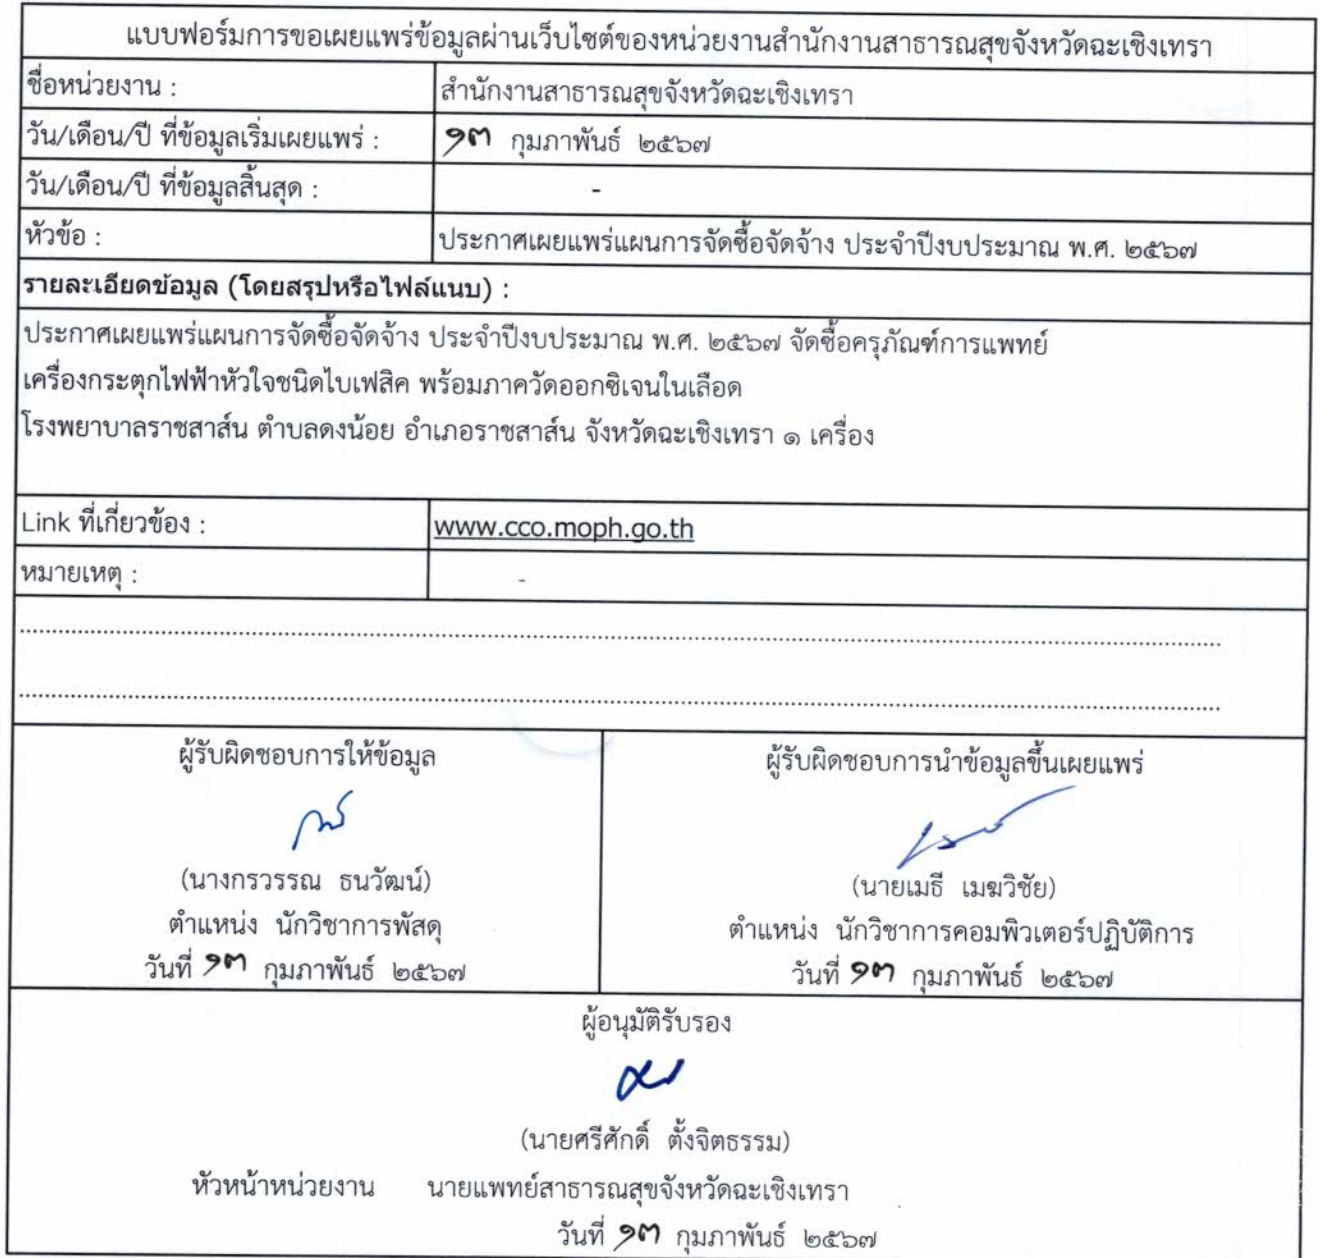 แบบฟอร์มการขอเผยแพร่ข้อมูลผ่านเว็บไซต์ของหน่วยงานสำนักงานสาธารณสุขจังหวัดฉะเชิงเทรา
ชื่อหน่วยงาน : สำนักงานสาธารณสุขจังหวัดฉะเชิงเทรา
วัน/เดือน/ปี ที่ข้อมูลเริ่มเผยแพร่ : ๑๓ กุมภาพันธ์ ๒๕๖๗
วัน/เดือน/ปี ที่ข้อมูลสิ้นสุด : -
หัวข้อ : ประกาศเผยแพร่แผนการจัดซื้อจัดจ้าง ประจำปีงบประมาณ พ.ศ. ๒๕๖๗
รายละเอียดข้อมูล (โดยสรุปหรือไฟล์แนบ) :
ประกาศเผยแพร่แผนการจัดซื้อจัดจ้าง ประจำปีงบประมาณ พ.ศ. ๒๕๖๗ จัดซื้อครุภัณฑ์การแพทย์
เครื่องกระตุกไฟฟ้าหัวใจชนิดไบเฟสิค พร้อมภาควัดออกซิเจนในเลือด
โรงพยาบาลราชสาส์น ตำบลดงน้อย อำเภอราชสาส์น จังหวัดฉะเชิงเทรา ๑ เครื่อง
Link ที่เกี่ยวข้อง : www.cco.moph.go.th
หมายเหตุ : -
ผู้รับผิดชอบการให้ข้อมูล ผู้รับผิดชอบการนำข้อมูลขึ้นเผยแพร่
(นางกรวรรณ ธนวัฒน์) (นายเมธี เมฆวิชัย)
ตำแหน่ง นักวิชาการพัสดุ ตำแหน่ง นักวิชาการคอมพิวเตอร์ปฏิบัติการ
วันที่ ๑๓ กุมภาพันธ์ ๒๕๖๗ วันที่ ๑๓ กุมภาพันธ์ ๒๕๖๗
ผู้อนุมัติรับรอง
(นายศรีศักดิ์ ตั้งจิตธรรม)
หัวหน้าหน่วยงาน นายแพทย์สาธารณสุขจังหวัดฉะเชิงเทรา
วันที่ ๑๓ กุมภาพันธ์ ๒๕๖๗